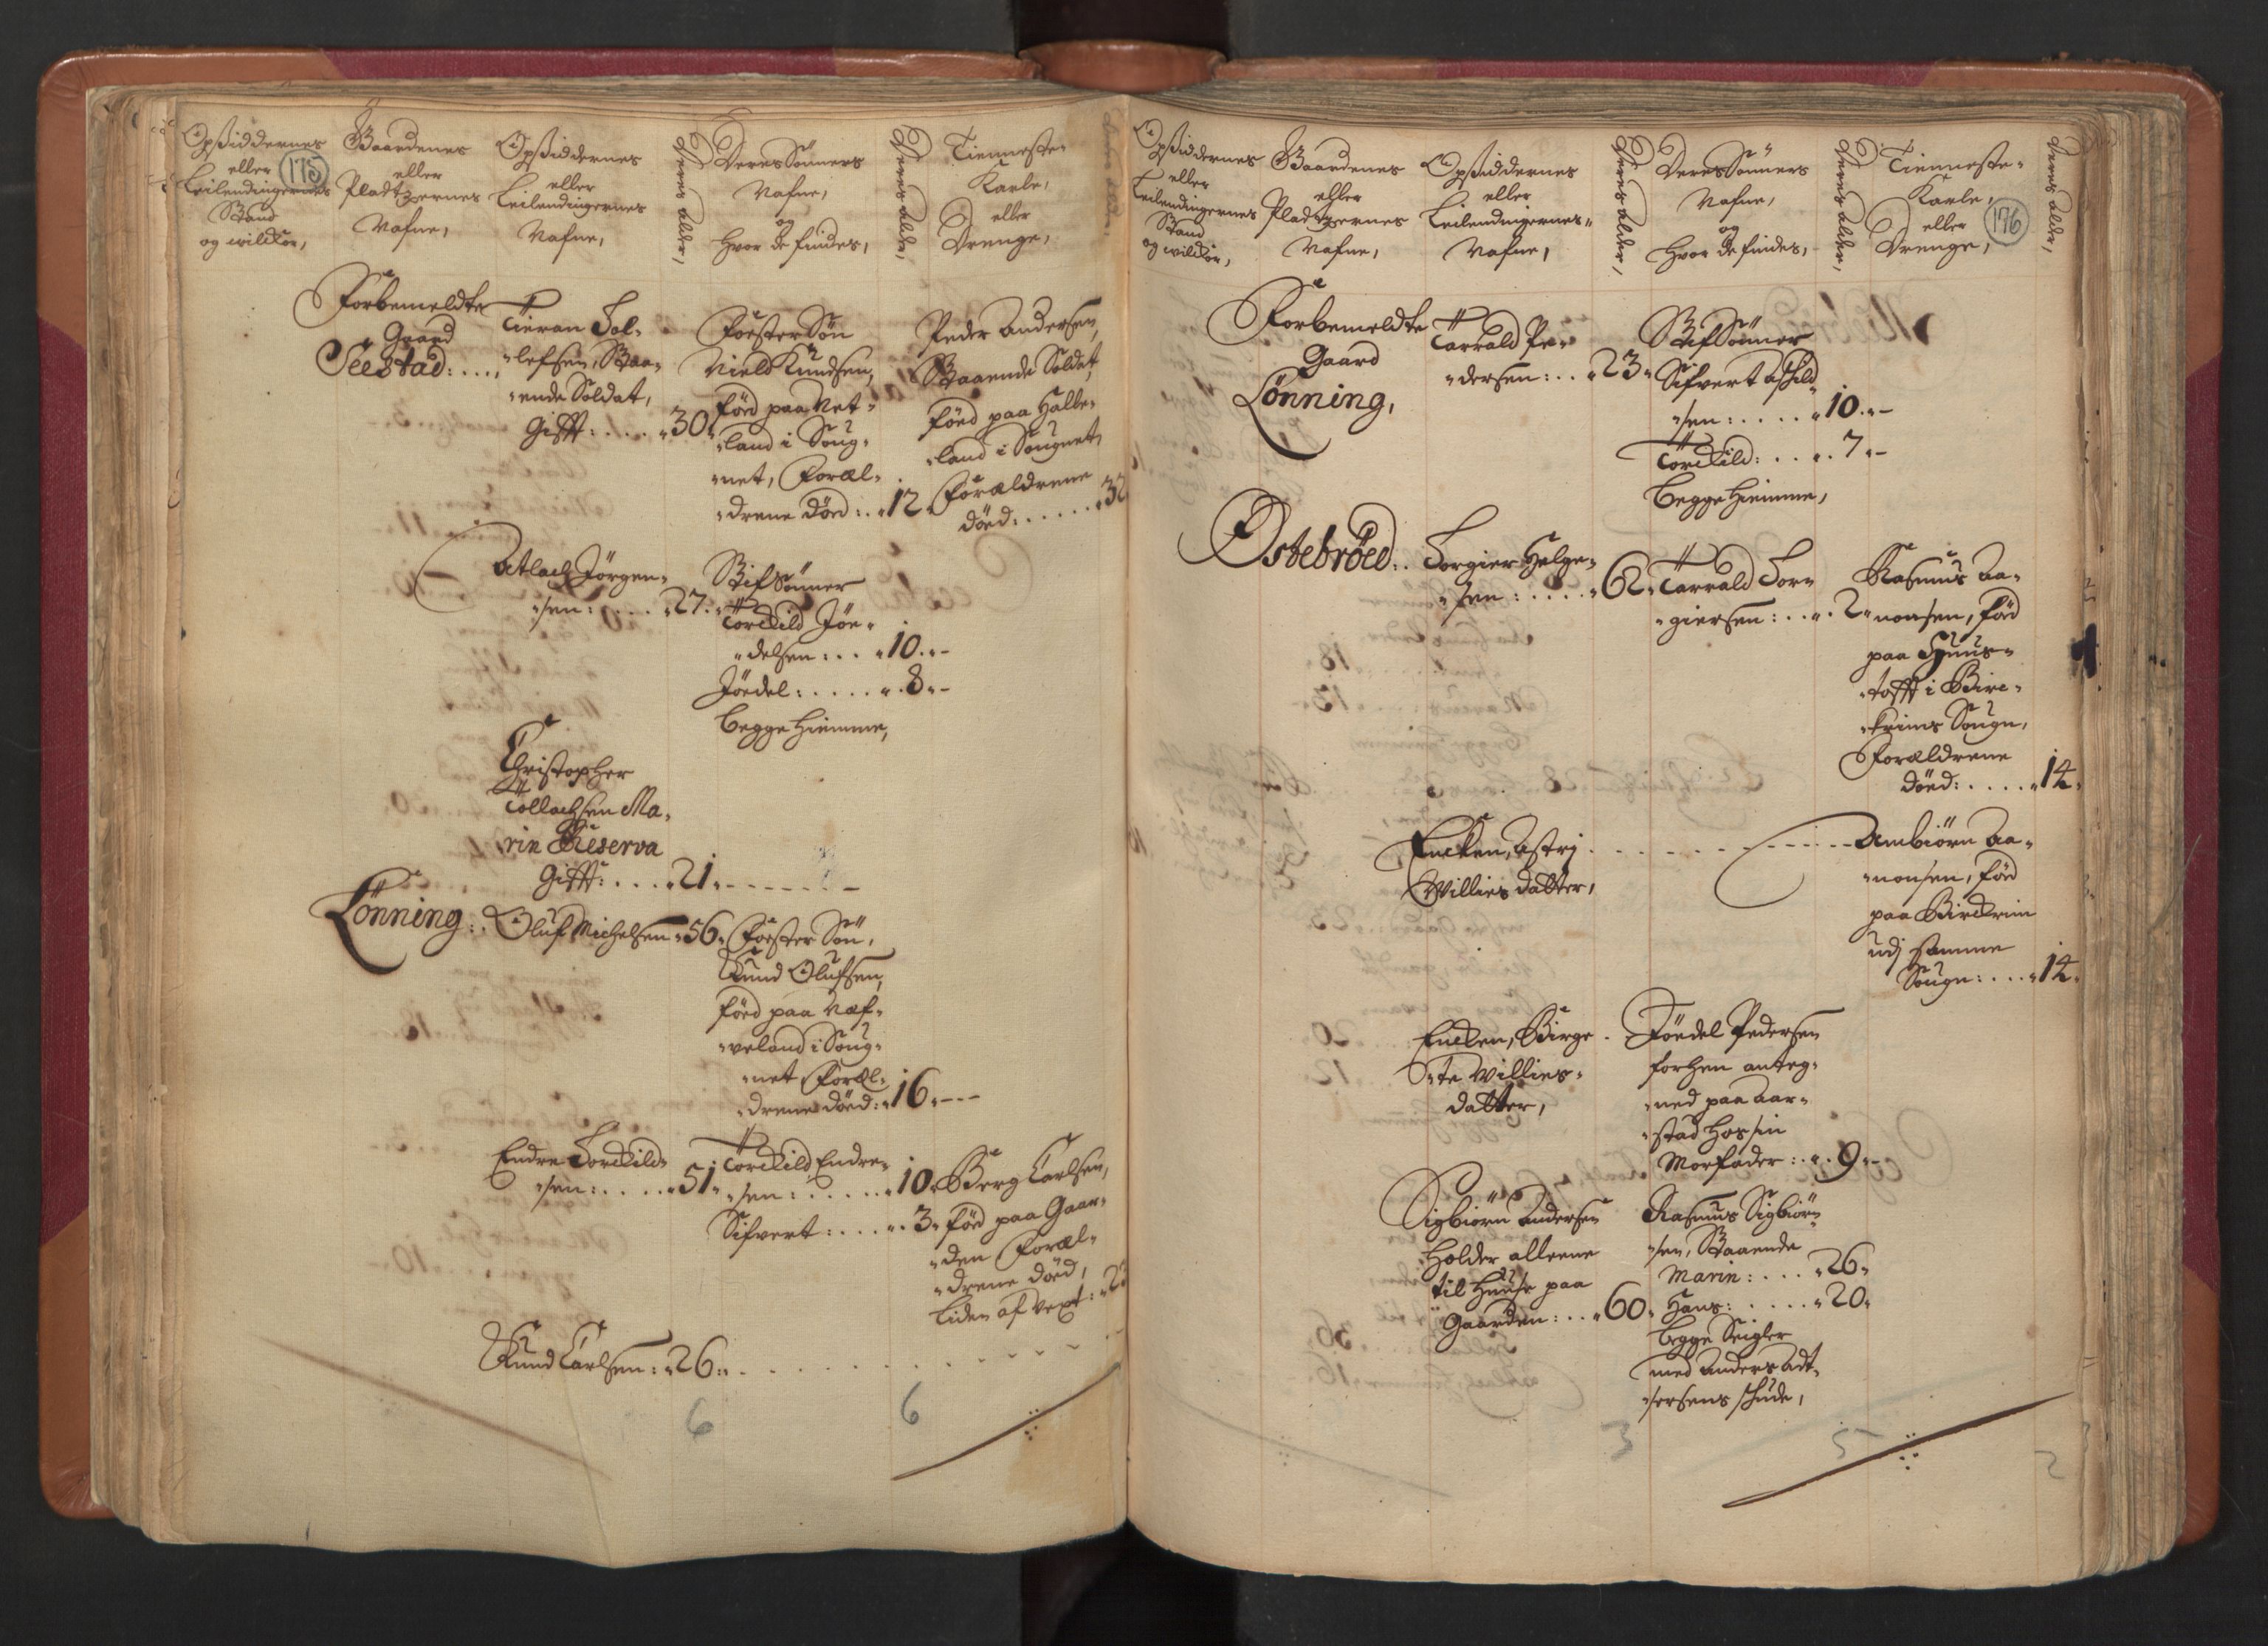 175
Opsiddernes
eller
Leilendingernes
Stand
og wilckor,
Gaardenes
eller
Pladtzernes
Nafne,
Opsiddernes
eller
Leilendingernes
Nafne,
Deres alder,
Deres Sönners
Nafne,
og
hvor de findes,
Deres alder,
Tienneste-
Karle,
eller
Drenge,
Forbemeldte
Gaard
Seestad: . . .
Tieran Sol-
lefsen, Staa-
ende Soldat,
Gifft: . . . . 30
Foster Sön
Nield Knudsen,
föed paa Net-
land i Soug-
net, Foræl-
drene döed: . 12
Peder Andersen,
Staaende Soldat,
föed paa Halle-
land i Sougnet,
Forældrene
döed: . . . . 32
Atlach Jörgen-
sen: . . . . 27.
Stifsönner
Torckild Jöe-
delsen: . . 10. -
Jöedel: . . . . 8 -
begge hiemme,
Christopher
Tollachsen Ma-
rin Reserva
Gifft: . . . 21. - - - - - -
Lönning: . Oluf Michelsen 56.
Foster Sön,
Knud Olufsen,
föed paa Næf-
veland i Soug-
net Foræl-
drene döed: 16. - - -
Endre Torckild-
sen: . . . . 51.
Torckild Endre-
sen: . . . . . 10.
Sifvert: . . . . 3.
Berg Carlsen,
föed paa Gaar-
den Foræl-
drene döed,
liden af vext: 2
Knud Carlsen: 26. . . . . . . .
6 6
176
Opsiddernes
eller
Leilendingernes
Stand
og wilckor,
Gaardenes
eller
Pladtzernes
Nafne,
Opsiddernes
eller
Leilendingernes
Nafne,
Deres alder,
Deres Sönners
Nafne,
og
hvor de findes,
Deres alder,
Tienneste-
Karle,
eller
Drenge,
Deres alder,
Forbemeldte
Gaard
Lönning,
Tarrald Pe-
dersen: . . 23.
Stifsönner
Sifvert Askild-
sen: . . . . 10. -
Torckild: . . . 7. -
begge hiemme,
Østebröed: . Torgier Helge-
sen: . . . . 62.
Tarrald Tor-
giersen: . . . 2.
Rasmus Aa-
nonsen, föed
paa Huus-
tofft i Birc-
krims Sougn,
Forældrene
döed: . . . . 14.
Encken, Astrj
Willies datter,
Ambiörn Aa-
nonsen, föed
paa Birckrim
udj samme
Sougn: . . . 14.
Encken, Birge-
te Willies-
datter,
Jöedel Pedersen
forhen anteg-
ned paa Aar-
stad hos sin
Morfader: . . 9. -
Sigbiörn Andersen
holder alleene
til Huuse paa
Gaarden: . . 60.
Rasmus Sigbiörn-
sen, Staaende
Marin: . . . 26.
Hans: . . . . 20.
begge Seigler
med Anders Adt-
sersens skude,
3 5 2